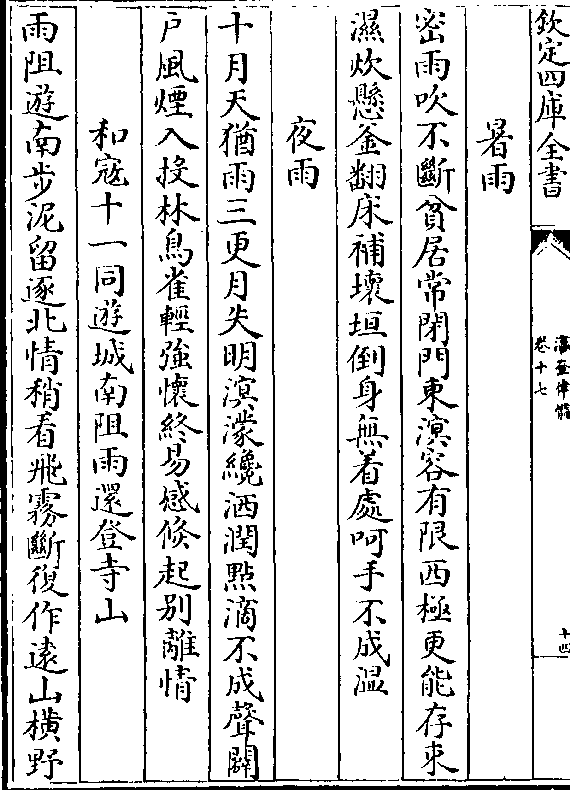 欽定四庫全書
瀛奎律髓
卷十七
十四
暑雨
密雨吹不斷貧居常閉門東溟容有限西極更能存束
濕炊懸釜翻床補壞垣倒身無着處呵手不成溫
夜雨
十月天猶雨三更月失明溟濛纔洒潤點滴不成聲闢
戸風煙入投林鳥雀輕強懷終易感倐起别離情
和寇十一同遊城南阻雨還登寺山
雨阻遊南步泥留逐北情稍看飛霧斷復作遠山横野